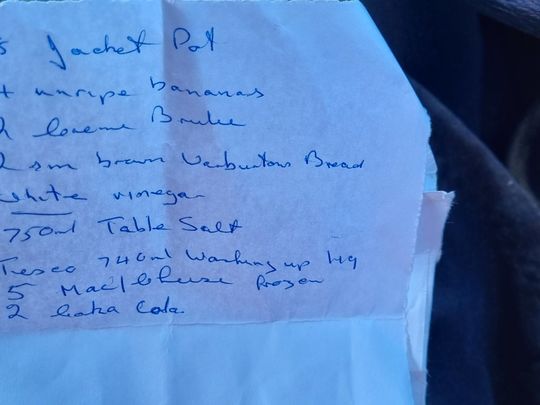 5 Jacket Pot
4 unripe bananas
2 Creme Brulee
2 sm brown Warburtons Bread
white vinegar
750ml Table Salt
Tesco 740ml Washing up liq
5 Mac/Cheese frozen
2 Coka Cola